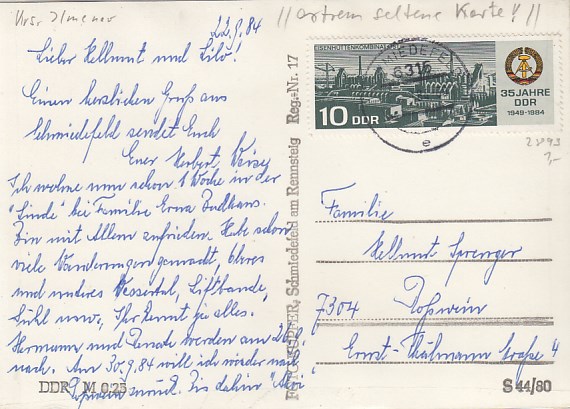 Krs. Ilmenau
// extrem seltene Karte! //
22.9.84
Lieber Hellmut und Lilo!
Einen herzlichen Gruß aus
Schmiedefeld sendet Euch
Euer Herbert
Ich wohne nun schon 1 Woche in der
"Linde" bei Familie Erna
Bin mit Allem zufrieden. Habe schon
viele Wanderungen gemacht, Oberes
und unteres Vessertal, Liftbaude,
Suhl usw., Ihr kennt ja alles.
Hermann und Renate werden am
nach. Am 30.9.84 will ich wieder nach
zurück. Bis dahin
DDR M 0,25
FOTO-SUPFER, Schmiedefeld am Rennsteig Reg.-Nr. 17
EISENHÜTTENKOMBINAT
10 DDR
35 JAHRE
DDR
1949-1984
6316
e
2893
Familie
Hellmut Sprenger
7304 Roßwein
Ernst-Thälmann Straße 4
S 44/80